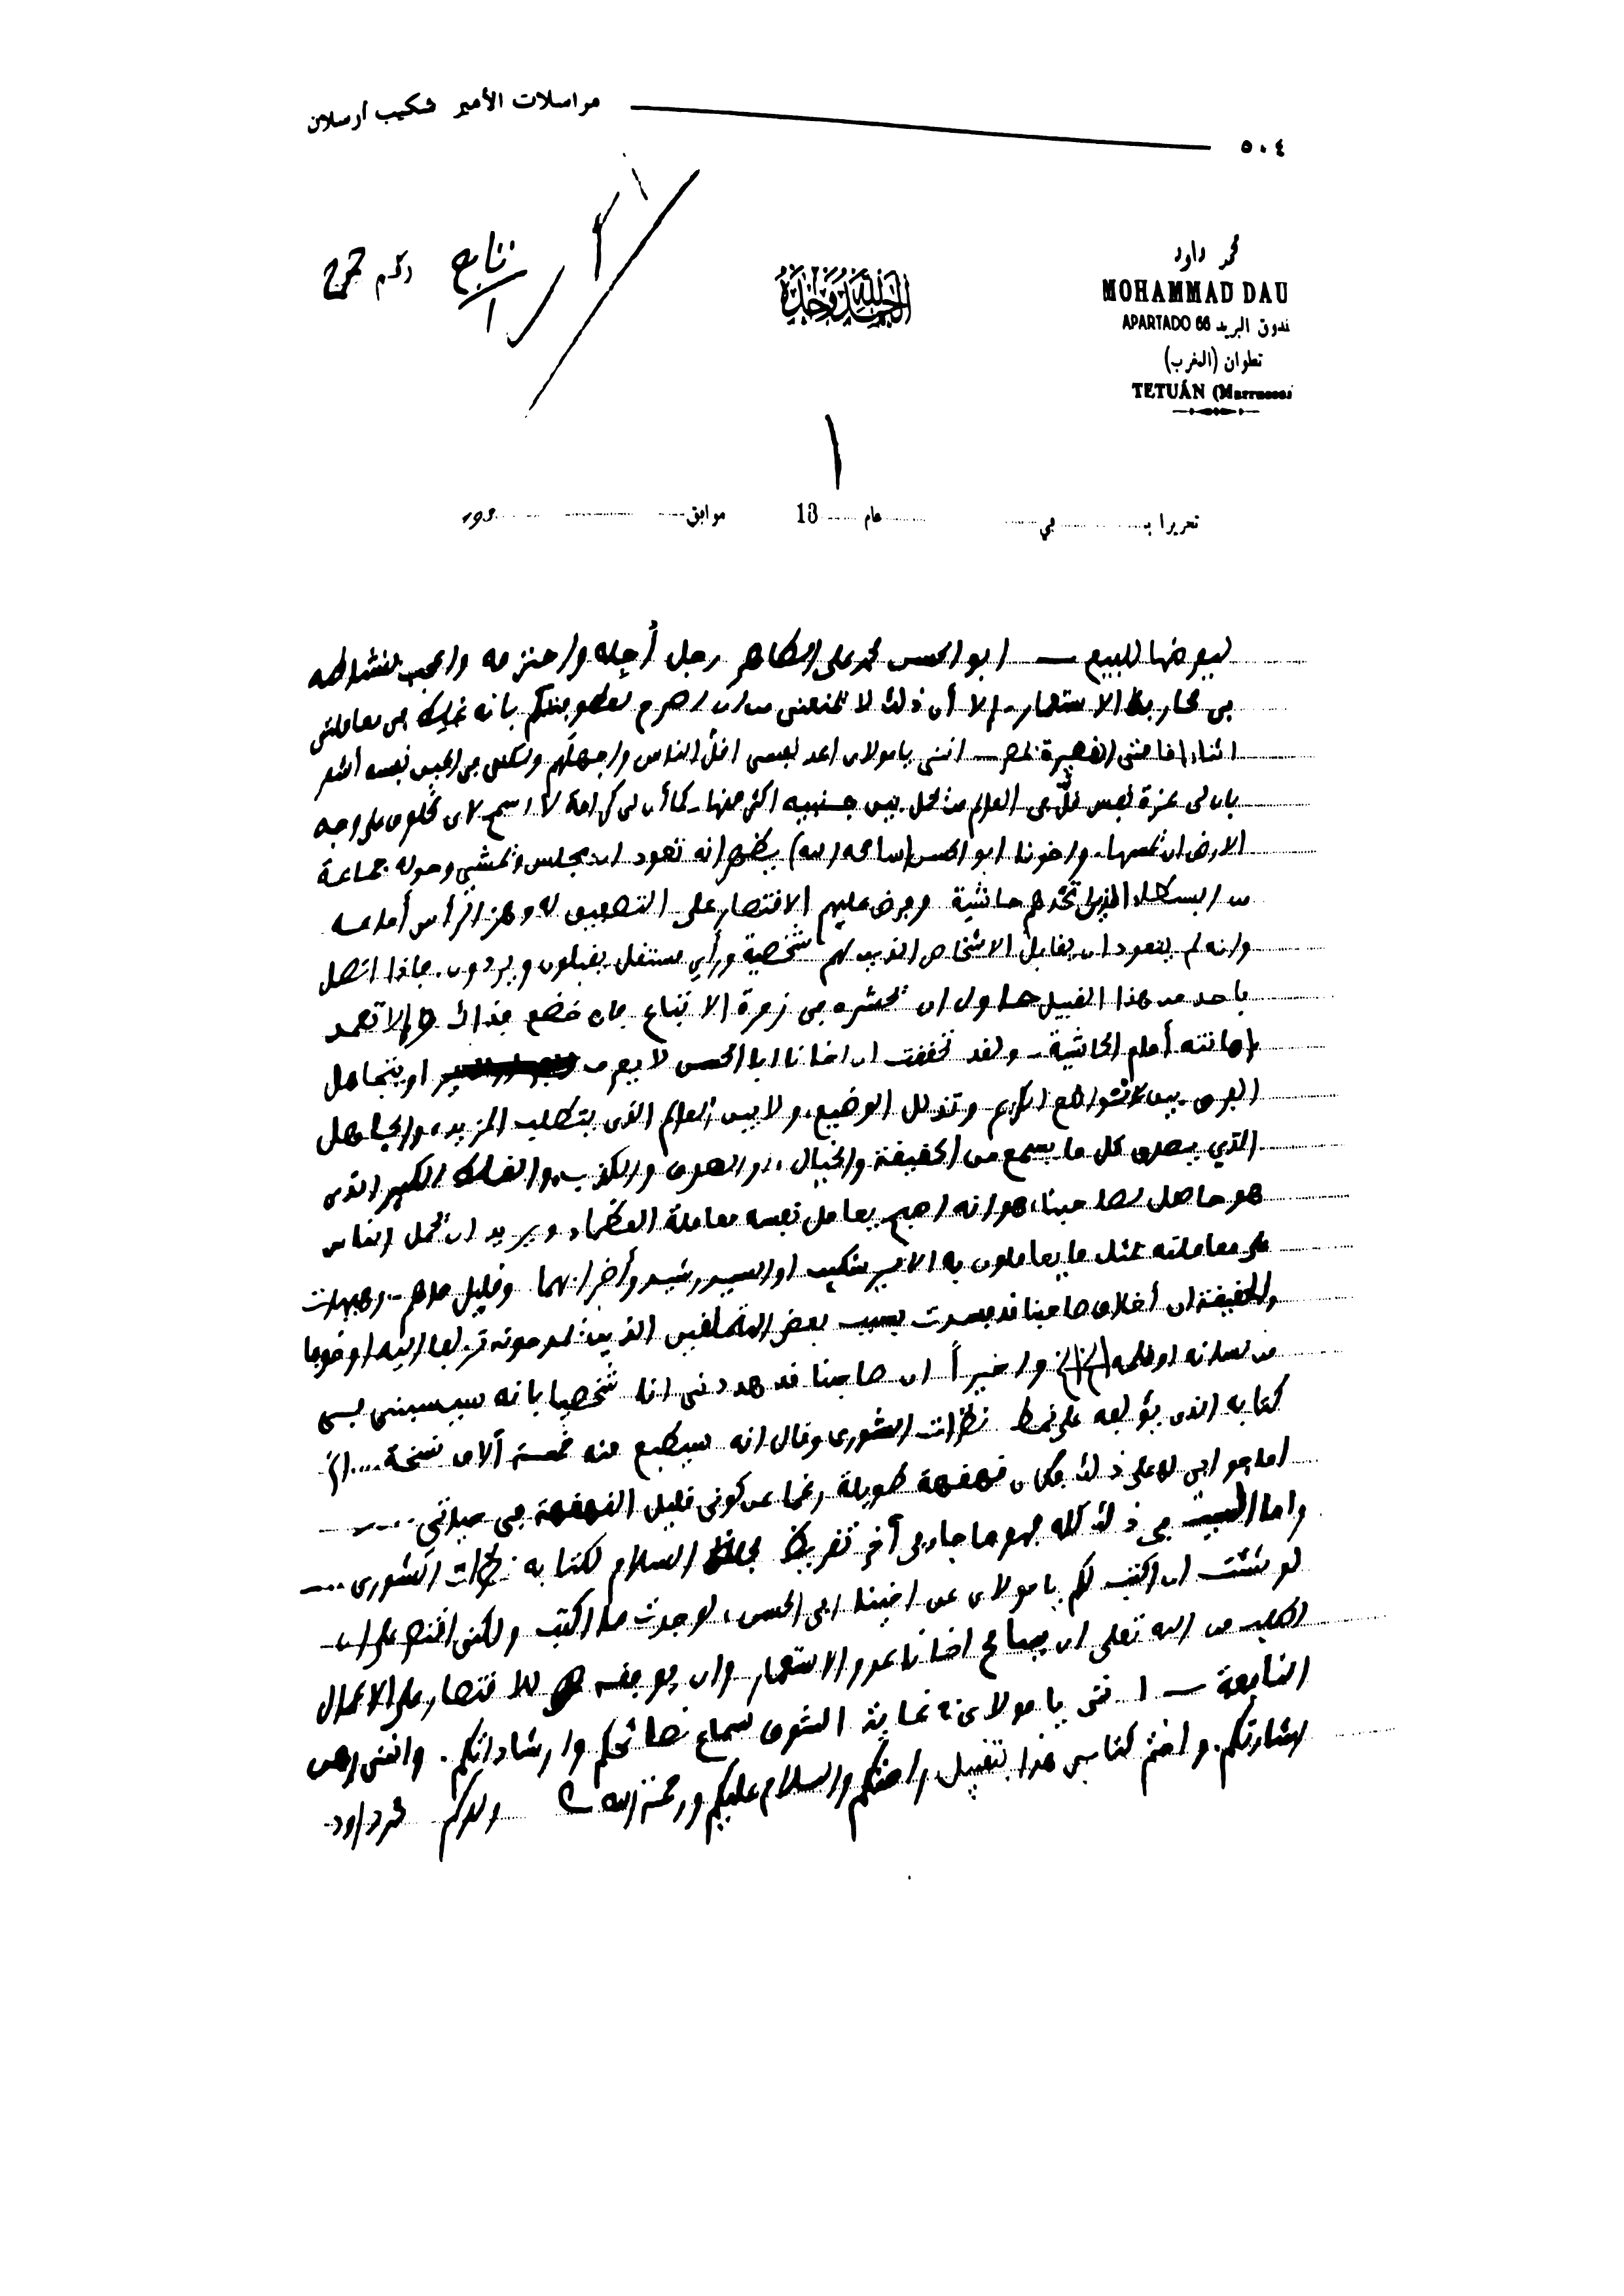 مراسلات الأمير شكيب ارسلان
٥٠٤
محمد داود
MOHAMMAD DAU
ندوق البريد APARTADO 66
تطوان (المغرب)
TETUÁN (Marruecos)
الحمد لله وحده
تابع
١
تحريرا بـ في عام 13 موافق 193
ليعرضها للبيع — ابو الحسن محمد على الطاهر رجل أجله واحترمه واعجب بنشاطه
في محاربة الاستعمار - إلا أن ذلك لا يمنعنى من ان اصرح لعطوفتكم بانه في معاملتى
اثناء اقامتى القصيرة بمصر — اننى يا مولاى اعد نفسى اقل الناس واجهلهم ولكن في الحين نفسه أشعر
بان لى عزة نفس قل في العالم من يحمل بين جنبيه اكثر منها - كما أن لى كرامة لا اسمح لاى مخلوق على وجه
الارض ان يمسها. واخونا ابو الحسن (سامحه الله) يظهر انه تعود ان يجلس ويمشي وحوله جماعة
من البسطاء الذين اتخذهم حاشية وفرض عليهم الاقتصار على التصفيق له وهز الرأس أمامه
وانه لم يتعود ان يقابل الاشخاص الذين لهم شخصية ورأي مستقل يقبلون ويردون. فاذا اتصل
باحد من هذا القبيل حاول ان يحشره في زمرة الاتباع فان خضع فذاك والا تعمد
إهانته أمام الحاشية - ولقد تحققت ان اخانا ابا الحسن لا يعرف او يتجاهل
الفرق بين تواضع الكريم وتذلل الوضيع، ولا بين العالم الذى يتطلب المزيد، والجاهل
الذي يصدق كل ما يسمع من الحقيقة والخيال، والصدق والكذب، والغلط الكبير الذى
هو حاصل لصاحبنا، هو انه اصبح يعامل نفسه معاملة العظماء ويريد ان يحمل الناس
على معاملته بمثل ما يعاملون به الامير شكيب او السيد رشيد وأضرابهما وقليل ما هم - وهيهات
والحقيقة ان أخلاق صاحبنا قد فسدت بسبب بعض المتملقين الذين يمدحونه تزلفا اليه او خوفا
من لسانه او قلمه واخيراً ان صاحبنا قد هددنى انا شخصيا بانه سيسبنى في
كتابه الذى يؤلفه على نمط نظرات الشورى وقال انه سيطبع منه خمسة آلاف نسخة .... الخ
اما جوابى له على ذلك فكان قهقهة طويلة رغما عن كونى قليل القهقهة في حياتى ....
واما السبب في ذلك كله فهو ما جاء في آخر تقريظ مجلة السلام لكتابه نظرات الشورى ....
لو شئت ان اكتب لكم يا مولاى عن اخينا ابى الحسن، لوجدت ما اكتب ولكنى اقتصر على ان
اطلب من الله تعلى ان يسامح اخانا عدو الاستعمار وان يوفقه للاقتصار على الاعمال
النافعة — اننى يا مولاى في غاية الشوق لسماع نصائحكم وارشاداتكم. واننى رهن
اشارتكم. واختم كتابي هذا بتقبيل راحتكم والسلام عليكم ورحمة الله ولدكم محمد داود